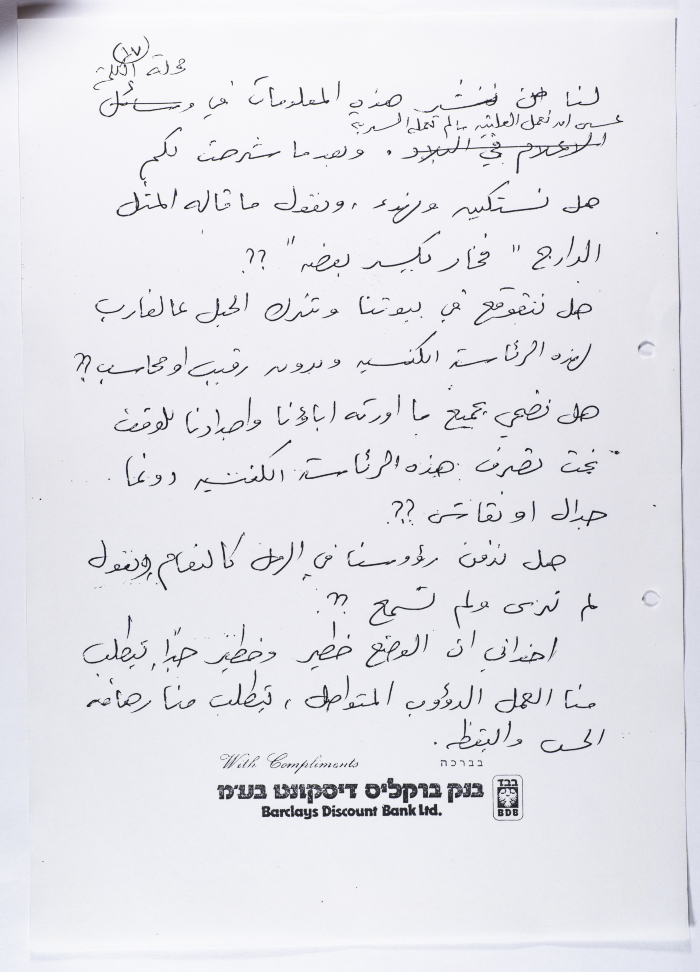 (١٧)
لنا من ننشر هذه المعلومات في وسائل
عسى ان تعمل العلنية ما لم تعمله السرية
الاعلام في البلاد . وبعدما شرحت لكم
هل نستكين ونهدء ، ونقول ما قاله المثل
الدارج " فخار يكسر بعضه " ??
هل نتقوقع في بيوتنا ونترك الحبل عالغارب
لهذه الرئاسة الكنسيه وبدون رقيب او محاسب ??
هل نضحي بجميع ما اورثه اباؤنا واجدادنا للوقف
تحت تصرف هذه الرئاسة الكنسيه دونما
جدال او نقاش ??
هل ندفن رؤوسنا في الرمل كالنعام ونقول
لم نرى ولم نسمع ??
اخواني ان الوضع خطير وخطير جدًا يتطلب
منا العمل الدؤوب المتواصل ، يتطلب منا رهافه
الحس واليقظه .
With Compliments בברכה
בנק ברקליס דיסקונט בע״מ בבד
Barclays Discount Bank Ltd. BDB